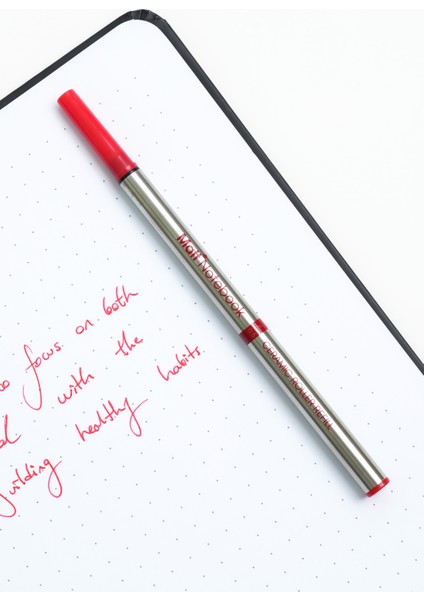 Matt Notebook
CERAMIC ROLLER REFILL
focus on both
with the
building healthy habits